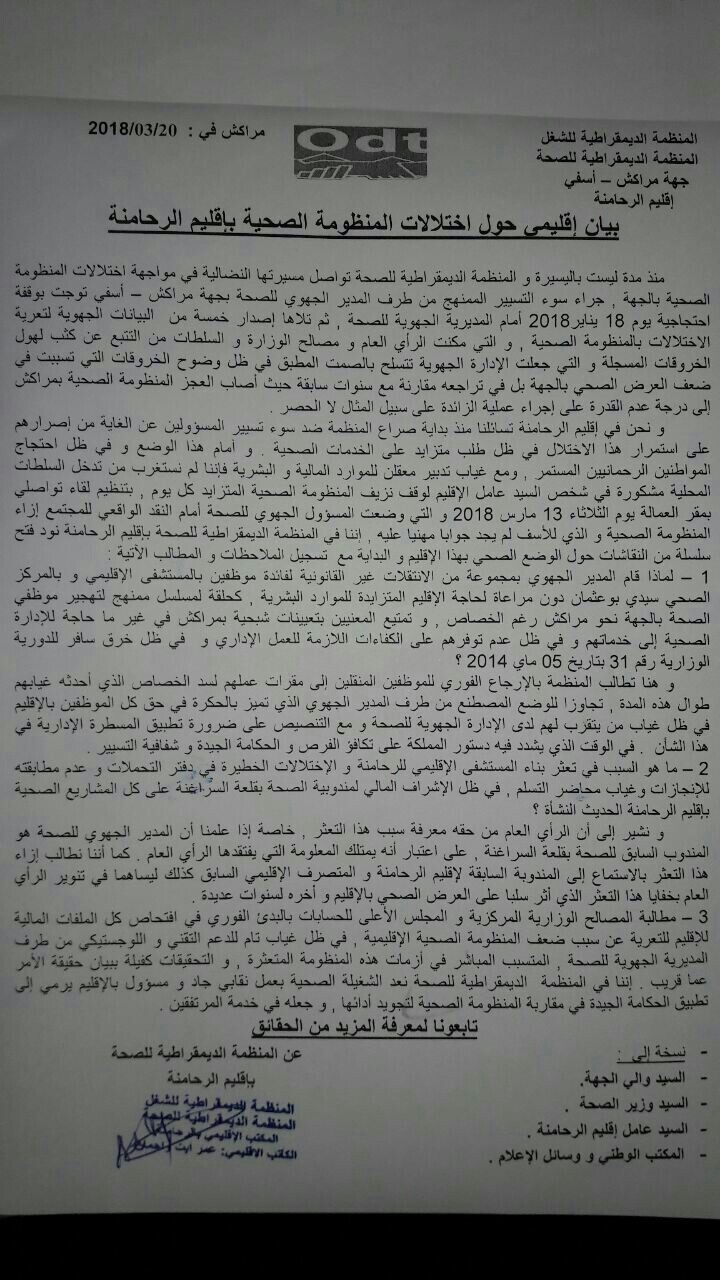 المنظمة الديمقراطية للشغل
المنظمة الديمقراطية للصحة
جهة مراكش – أسفي
إقليم الرحامنة
Odt
مراكش في : 2018/03/20
بيان إقليمي حول اختلالات المنظومة الصحية بإقليم الرحامنة
منذ مدة ليست باليسيرة و المنظمة الديمقراطية للصحة تواصل مسيرتها النضالية في مواجهة اختلالات المنظومة
الصحية بالجهة , جراء سوء التسيير الممنهج من طرف المدير الجهوي للصحة بجهة مراكش – أسفي توجت بوقفة
احتجاجية يوم 18 يناير2018 أمام المديرية الجهوية للصحة , ثم تلاها إصدار خمسة من البيانات الجهوية لتعرية
الاختلالات بالمنظومة الصحية , و التي مكنت الرأي العام و مصالح الوزارة و السلطات من التتبع عن كثب لهول
الخروقات المسجلة و التي جعلت الإدارة الجهوية تتسلح بالصمت المطبق في ظل وضوح الخروقات التي تسببت في
ضعف العرض الصحي بالجهة بل في تراجعه مقارنة مع سنوات سابقة حيث أصاب العجز المنظومة الصحية بمراكش
إلى درجة عدم القدرة على إجراء عملية الزائدة على سبيل المثال لا الحصر .
و نحن في إقليم الرحامنة تسائلنا منذ بداية صراع المنظمة ضد سوء تسيير المسؤولين عن الغاية من إصرارهم
على استمرار هذا الاختلال في ظل طلب متزايد على الخدمات الصحية . و أمام هذا الوضع و في ظل احتجاج
المواطنين الرحمانيين المستمر , ومع غياب تدبير معقلن للموارد المالية و البشرية فإننا لم نستغرب من تدخل السلطات
المحلية مشكورة في شخص السيد عامل الإقليم لوقف نزيف المنظومة الصحية المتزايد كل يوم , بتنظيم لقاء تواصلي
بمقر العمالة يوم الثلاثاء 13 مارس 2018 و التي وضعت المسؤول الجهوي للصحة أمام النقد الواقعي للمجتمع إزاء
المنظومة الصحية و الذي للأسف لم يجد جوابا مهنيا عليه , إننا في المنظمة الديمقراطية للصحة بإقليم الرحامنة نود فتح
سلسلة من النقاشات حول الوضع الصحي بهذا الإقليم و البداية مع تسجيل الملاحظات و المطالب الآتية :
1 – لماذا قام المدير الجهوي بمجموعة من الانتقلات غير القانونية لفائدة موظفين بالمستشفى الإقليمي و بالمركز
الصحي سيدي بوعثمان دون مراعاة لحاجة الإقليم المتزايدة للموارد البشرية , كحلقة لمسلسل ممنهج لتهجير موظفي
الصحة بالجهة نحو مراكش رغم الخصاص , و تمتيع المعنيين بتعيينات شبحية بمراكش في غير ما حاجة للإدارة
الصحية إلى خدماتهم و في ظل عدم توفرهم على الكفاءات اللازمة للعمل الإداري و في ظل خرق سافر للدورية
الوزارية رقم 31 بتاريخ 05 ماي 2014 ؟
و هنا تطالب المنظمة بالإرجاع الفوري للموظفين المنقلين إلى مقرات عملهم لسد الخصاص الذي أحدثه غيابهم
طوال هذه المدة , تجاوزا للوضع المصطنع من طرف المدير الجهوي الذي تميز بالحكرة في حق كل الموظفين بالإقليم
في ظل غياب من يتقرب لهم لدى الإدارة الجهوية للصحة و مع التنصيص على ضرورة تطبيق المسطرة الإدارية في
هذا الشأن . في الوقت الذي يشدد فيه دستور المملكة على تكافؤ الفرص و الحكامة الجيدة و شفافية التسيير .
2 – ما هو السبب في تعثر بناء المستشفى الإقليمي للرحامنة و الإختلالات الخطيرة في دفتر التحملات و عدم مطابقته
للإنجازات وغياب محاضر التسلم , في ظل الإشراف المالي لمندوبية الصحة بقلعة السراغنة على كل المشاريع الصحية
بإقليم الرحامنة الحديث النشأة ؟
و نشير إلى أن الرأي العام من حقه معرفة سبب هذا التعثر , خاصة إذا علمنا أن المدير الجهوي للصحة هو
المندوب السابق للصحة بقلعة السراغنة , على اعتبار أنه يمتلك المعلومة التي يفتقدها الرأي العام . كما أننا نطالب إزاء
هذا التعثر بالاستماع إلى المندوبة السابقة لإقليم الرحامنة و المتصرف الإقليمي السابق كذلك ليساهما في تنوير الرأي
العام بخفايا هذا التعثر الذي أثر سلبا على العرض الصحي بالإقليم و أخره لسنوات عديدة .
3 – مطالبة المصالح الوزارية المركزية و المجلس الأعلى للحسابات بالبدئ الفوري في افتحاص كل الملفات المالية
للإقليم للتعرية عن سبب ضعف المنظومة الصحية الإقليمية , في ظل غياب تام للدعم التقني و اللوجستيكي من طرف
المديرية الجهوية للصحة , المتسبب المباشر في أزمات هذه المنظومة المتعثرة , و التحقيقات كفيلة ببيان حقيقة الأمر
عما قريب . إننا في المنظمة الديمقراطية للصحة نعد الشغيلة الصحية بعمل نقابي جاد و مسؤول بالإقليم يرمي إلى
تطبيق الحكامة الجيدة في مقاربة المنظومة الصحية لتجويد أدائها , و جعله في خدمة المرتفقين .
تابعونا لمعرفة المزيد من الحقائق
- نسخة إلى :
- السيد والي الجهة.
- السيد وزير الصحة .
- السيد عامل إقليم الرحامنة .
- المكتب الوطني و وسائل الإعلام .
عن المنظمة الديمقراطية للصحة
بإقليم الرحامنة
المنظمة الديمقراطية للشغل
المنظمة الديمقراطية للصحة
المكتب الإقليمي بالرحامنة
الكاتب الاقليمي: عمر ايت